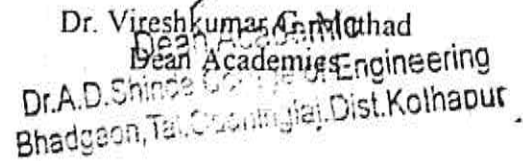 Dr. Vireshkumar G. Mathad
Dean Academics
Dean Academics
Dr.A.D.Shinde College of Engineering
Bhadgaon,Tal.Gadhinglaj,Dist.Kolhapur